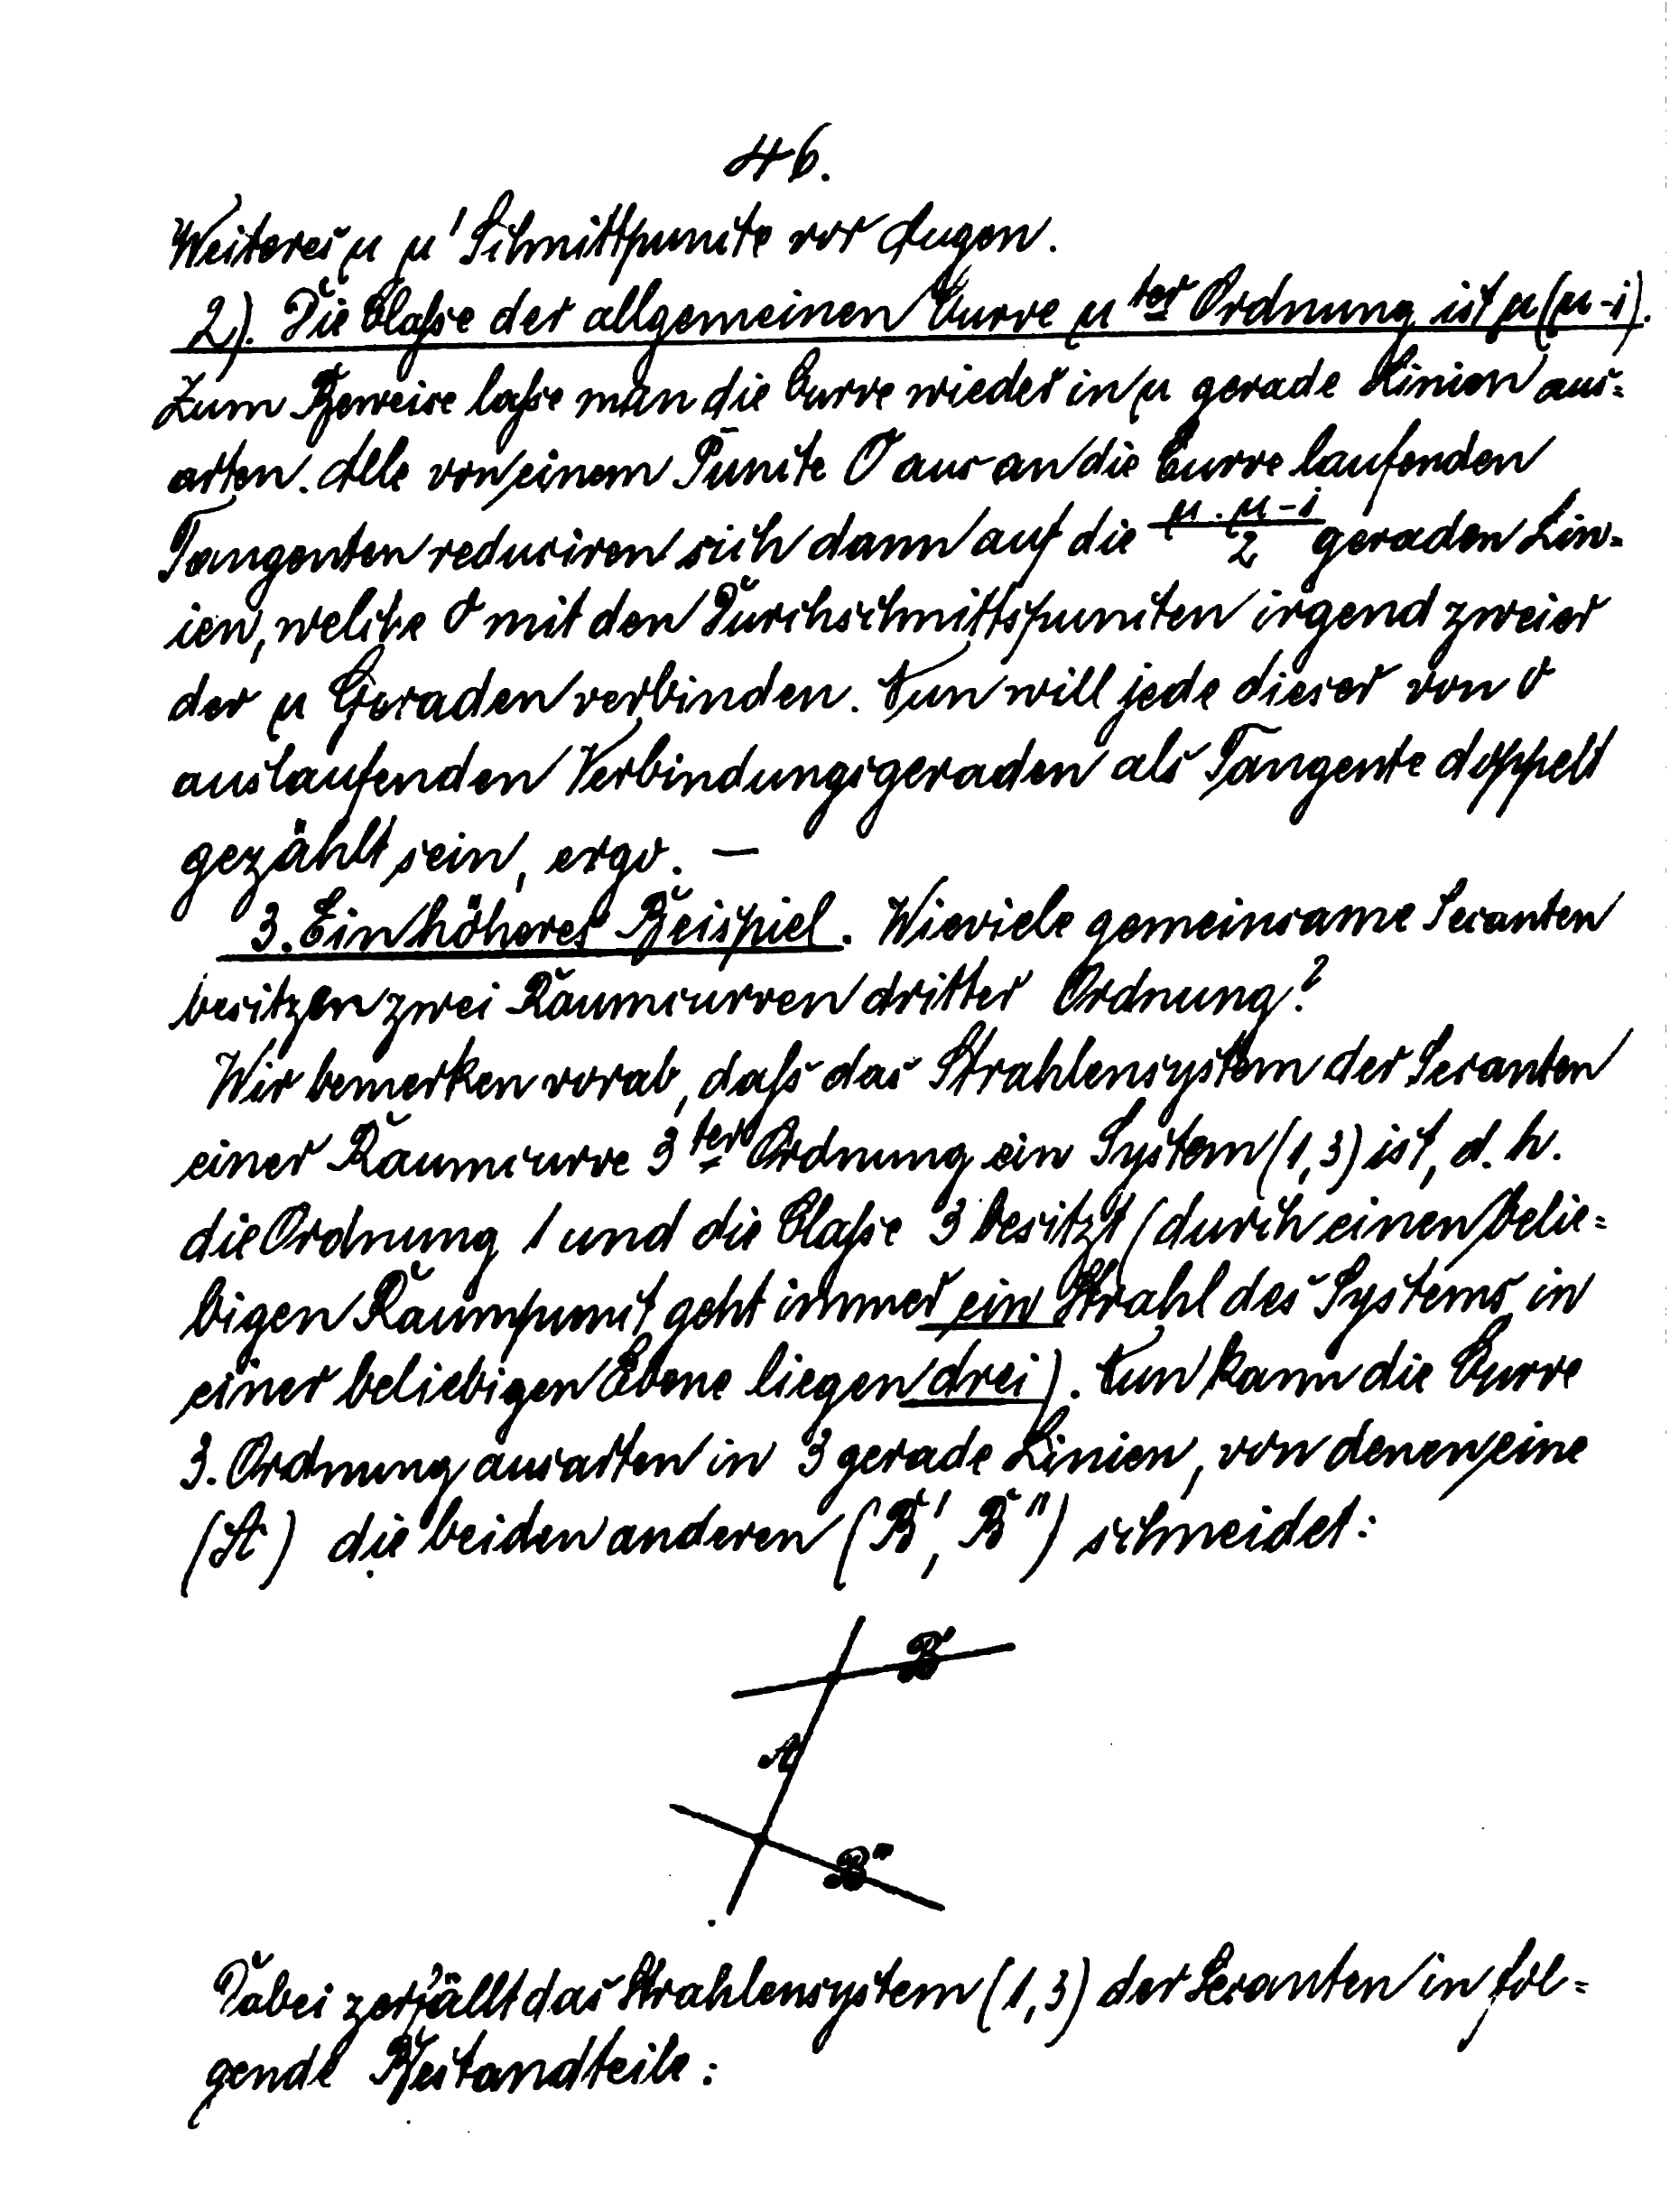 46.
Weiteres μ μ' Schnittpuncte vor Augen.
2). Die Classe der allgemeinen Curve μ ter Ordnung ist μ(μ-1).
Zum Beweise lasse man die Curve wieder in μ gerade Linien aus-
arten. Alle von einem Puncte O aus an die Curve laufenden
Tangenten reduciren sich dann auf die μ·μ-1/2 geraden Lin-
ien, welche O mit den Durchschnittspuncten irgend zweier
der μ Geraden verbinden. Nun will jede dieser von O
auslaufenden Verbindungsgeraden als Tangente doppelt
gezählt sein, ergo. —
3. Ein höheres Beispiel. Wieviele gemeinsame Secanten
besitzen zwei Raumcurven dritter Ordnung?
Wir bemerken vorab, dass das Strahlensystem der Secanten
einer Raumcurve 3 ter Ordnung ein System (1,3) ist, d. h.
die Ordnung 1 und die Classe 3 besitzt (durch einen belie-
bigen Raumpunct geht immer ein Strahl des Systems, in
einer beliebigen Ebene liegen drei). Nun kann die Curve
3. Ordnung ausarten in 3 gerade Linien, von denen eine
(A) die beiden anderen (B', B'') schneidet:
B'
A
B''
Dabei zerfällt das Strahlensystem (1,3) der Secanten in fol-
gende Bestandteile: